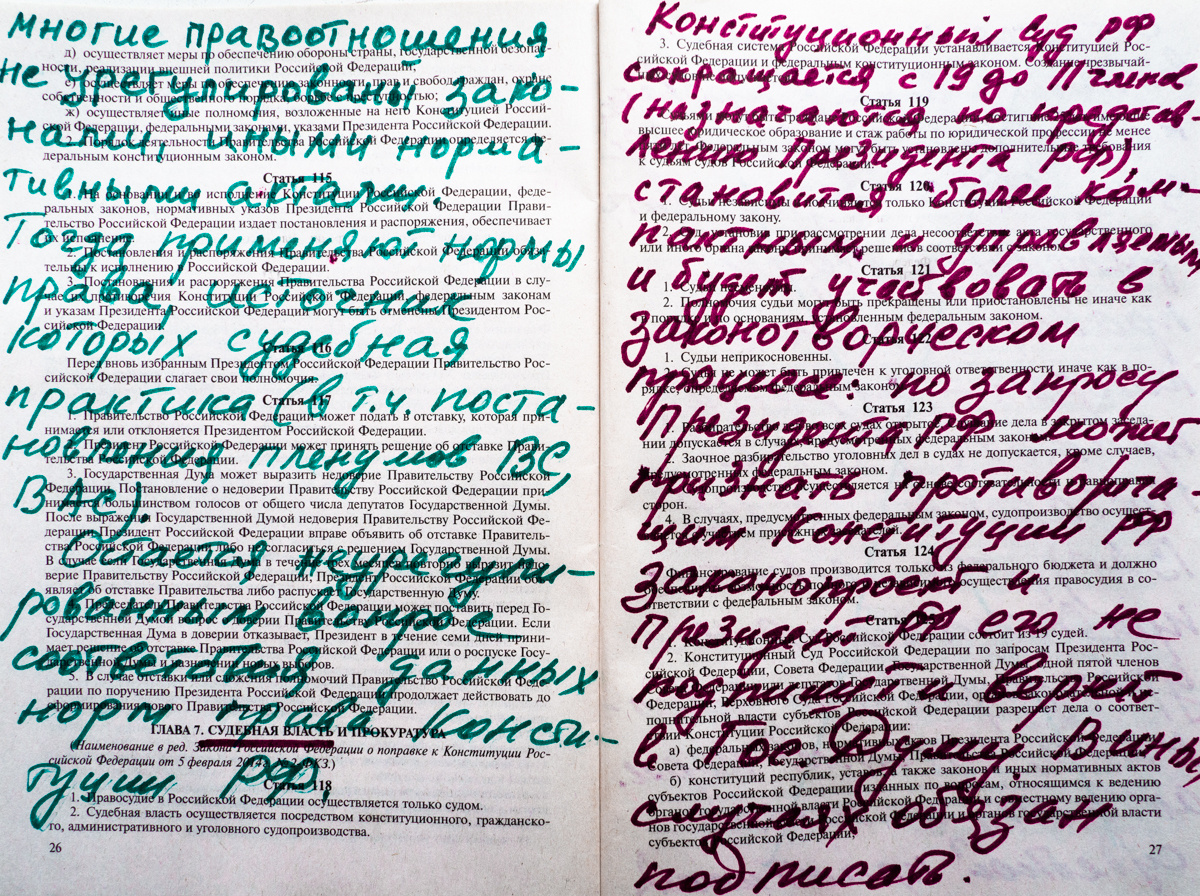 многие правоотношения
не урегулированы зако-
нами, иными норма-
тивными актами.
Тогда применяют нормы
права, источник
которых судебная
практика (в т.ч. поста-
новления пленумов ВС,
ВАС).
Остается неурегули-
рованным вопрос
соответствия данных
норм права Консти-
туции РФ.
д) осуществляет меры по обеспечению обороны страны, государственной безопас-
ности, реализации внешней политики Российской Федерации;
е) осуществляет меры по обеспечению законности, прав и свобод граждан, охране
собственности и общественного порядка, борьбе с преступностью;
ж) осуществляет иные полномочия, возложенные на него Конституцией Россий-
ской Федерации, федеральными законами, указами Президента Российской Федерации.
2. Порядок деятельности Правительства Российской Федерации определяется фе-
деральным конституционным законом.
Статья 115
1. На основании и во исполнение Конституции Российской Федерации, феде-
ральных законов, нормативных указов Президента Российской Федерации Прави-
тельство Российской Федерации издает постановления и распоряжения, обеспечивает
их исполнение.
2. Постановления и распоряжения Правительства Российской Федерации обяза-
тельны к исполнению в Российской Федерации.
3. Постановления и распоряжения Правительства Российской Федерации в слу-
чае их противоречия Конституции Российской Федерации, федеральным законам
и указам Президента Российской Федерации могут быть отменены Президентом Рос-
сийской Федерации.
Статья 116
Перед вновь избранным Президентом Российской Федерации Правительство Рос-
сийской Федерации слагает свои полномочия.
Статья 117
1. Правительство Российской Федерации может подать в отставку, которая при-
нимается или отклоняется Президентом Российской Федерации.
2. Президент Российской Федерации может принять решение об отставке Прави-
тельства Российской Федерации.
3. Государственная Дума может выразить недоверие Правительству Российской
Федерации. Постановление о недоверии Правительству Российской Федерации при-
нимается большинством голосов от общего числа депутатов Государственной Думы.
После выражения Государственной Думой недоверия Правительству Российской Фе-
дерации Президент Российской Федерации вправе объявить об отставке Правитель-
ства Российской Федерации либо не согласиться с решением Государственной Думы.
В случае если Государственная Дума в течение трех месяцев повторно выразит недо-
верие Правительству Российской Федерации, Президент Российской Федерации объ-
являет об отставке Правительства либо распускает Государственную Думу.
4. Председатель Правительства Российской Федерации может поставить перед Го-
сударственной Думой вопрос о доверии Правительству Российской Федерации. Если
Государственная Дума в доверии отказывает, Президент в течение семи дней прини-
мает решение об отставке Правительства Российской Федерации или о роспуске Госу-
дарственной Думы и назначении новых выборов.
5. В случае отставки или сложения полномочий Правительство Российской Феде-
рации по поручению Президента Российской Федерации продолжает действовать до
сформирования нового Правительства Российской Федерации.
ГЛАВА 7. СУДЕБНАЯ ВЛАСТЬ И ПРОКУРАТУРА
(Наименование в ред. Закона Российской Федерации о поправке к Конституции Рос-
сийской Федерации от 5 февраля 2014 г. № 2-ФКЗ.)
Статья 118
1. Правосудие в Российской Федерации осуществляется только судом.
2. Судебная власть осуществляется посредством конституционного, гражданско-
го, административного и уголовного судопроизводства.
26
Конституционный суд РФ
сокращается с 19 до 11 членов
(назначаются по представ-
лению Президента РФ),
становится более ком-
пактным и управляемым
и будет участвовать в
законотворческом
процессе: по запросу
Президента РФ может
признать противореча-
щим Конституции РФ
законопроект и
президент его не
подпишет а вернет
в Гос Думу. В иных
случаях обязан
подписать.
3. Судебная система Российской Федерации устанавливается Конституцией Рос-
сийской Федерации и федеральным конституционным законом. Создание чрезвычай-
ных судов не допускается.
Статья 119
Судьями могут быть граждане Российской Федерации, достигшие 25 лет, имеющие
высшее юридическое образование и стаж работы по юридической профессии не менее
пяти лет. Федеральным законом могут быть установлены дополнительные требования
к судьям судов Российской Федерации.
Статья 120
1. Судьи независимы и подчиняются только Конституции Российской Федерации
и федеральному закону.
2. Суд, установив при рассмотрении дела несоответствие акта государственного
или иного органа закону, принимает решение в соответствии с законом.
Статья 121
1. Судьи несменяемы.
2. Полномочия судьи могут быть прекращены или приостановлены не иначе как
в порядке и по основаниям, установленным федеральным законом.
Статья 122
1. Судьи неприкосновенны.
2. Судья не может быть привлечен к уголовной ответственности иначе как в по-
рядке, определяемом федеральным законом.
Статья 123
1. Разбирательство дел во всех судах открытое. Слушание дела в закрытом заседа-
нии допускается в случаях, предусмотренных федеральным законом.
2. Заочное разбирательство уголовных дел в судах не допускается, кроме случаев,
предусмотренных федеральным законом.
3. Судопроизводство осуществляется на основе состязательности и равноправия
сторон.
4. В случаях, предусмотренных федеральным законом, судопроизводство осущест-
вляется с участием присяжных заседателей.
Статья 124
Финансирование судов производится только из федерального бюджета и должно
обеспечивать возможность полного и независимого осуществления правосудия в со-
ответствии с федеральным законом.
Статья 125
1. Конституционный Суд Российской Федерации состоит из 19 судей.
2. Конституционный Суд Российской Федерации по запросам Президента Рос-
сийской Федерации, Совета Федерации, Государственной Думы, одной пятой членов
Совета Федерации или депутатов Государственной Думы, Правительства Российской
Федерации, Верховного Суда Российской Федерации, органов законодательной и ис-
полнительной власти субъектов Российской Федерации разрешает дела о соответ-
ствии Конституции Российской Федерации:
а) федеральных законов, нормативных актов Президента Российской Федерации,
Совета Федерации, Государственной Думы, Правительства Российской Федерации;
б) конституций республик, уставов, а также законов и иных нормативных актов
субъектов Российской Федерации, изданных по вопросам, относящимся к ведению
органов государственной власти Российской Федерации и совместному ведению орга-
нов государственной власти Российской Федерации и органов государственной власти
субъектов Российской Федерации;
27